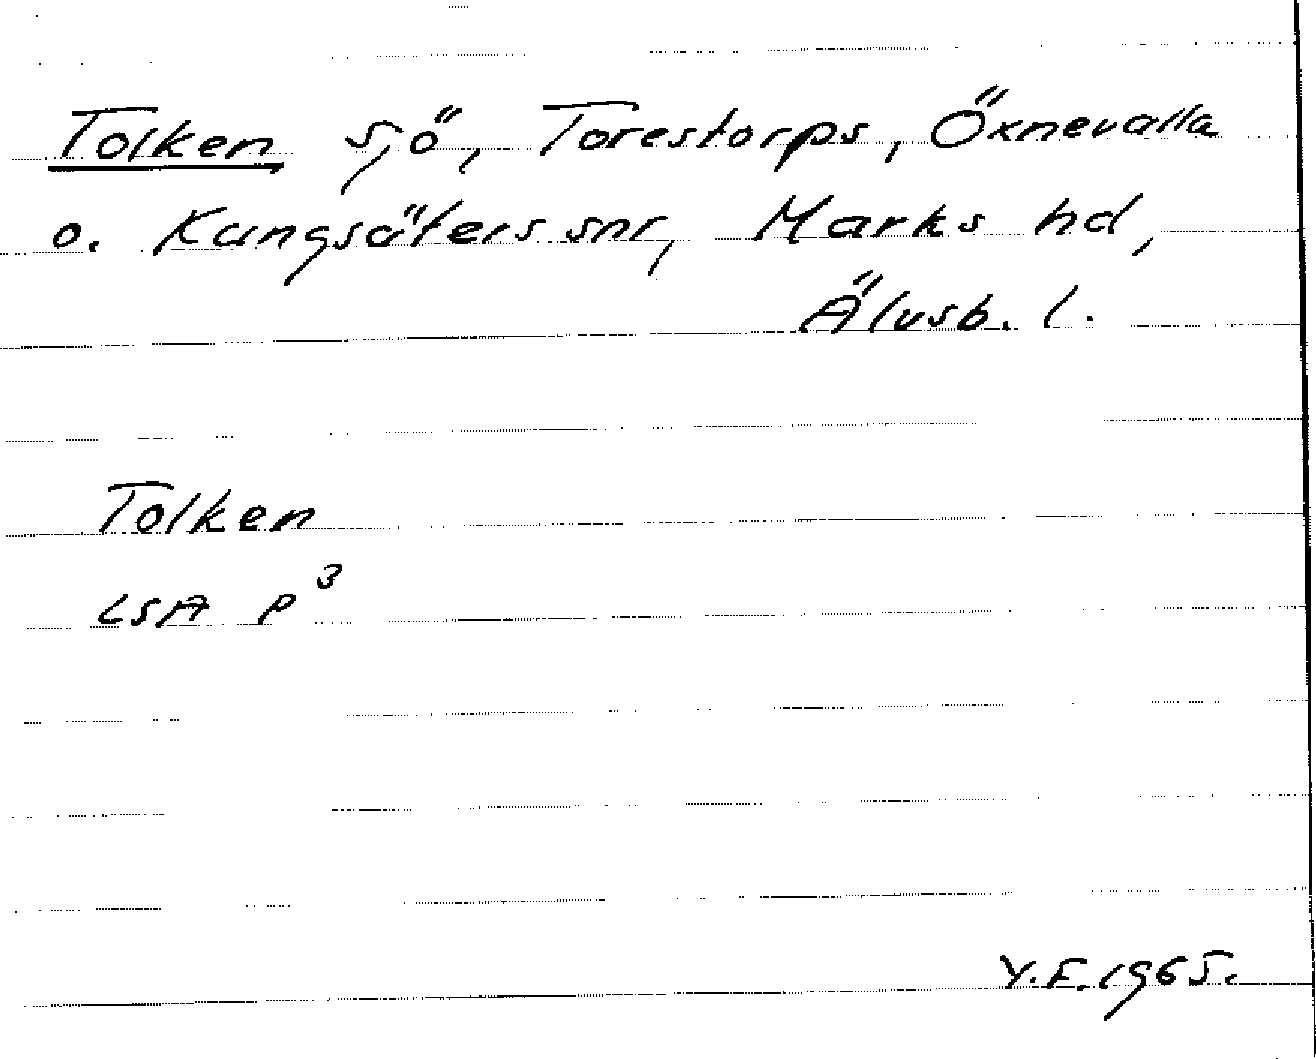 Tolken sjö, Torestorps, Öxnevalla
o. Kungsäters snr, Marks hd,
Älvsb. l.
Tolken
LSA P³
Y.E. 1965.